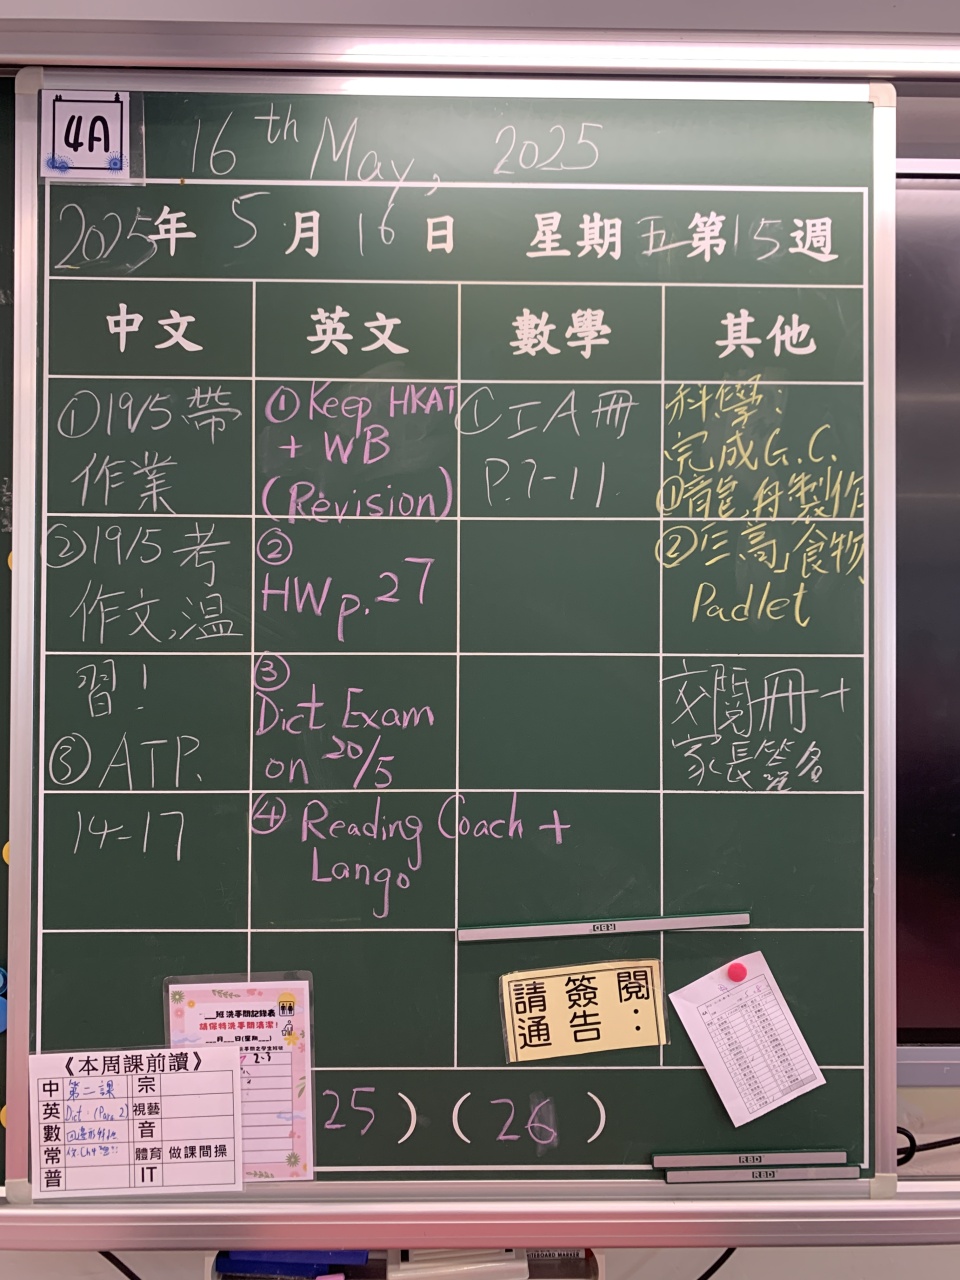 4A
16th May, 2025
2025年 5月16日 星期五第15週
中文 英文 數學 其他
①19/5帶
作業
②19/5考
作文,溫
習!
③ATP.
14-17
①Keep HKAT
+ WB
(Revision)
②
HW p.27
③
Dict Exam
on 20/5
④Reading Coach +
Lango
①工A冊
P.7-11.
科學:
完成G.C.
①龍舟製作
②「三高」食物
Padlet
交閱冊+
家長簽名
請簽閱
通告:
班洗手間記錄表
請保持洗手間清潔!
月 日(星期 )
2-3
《本周課前讀》
中 第二課 宗
英 Dict: (Para 2) 視藝
數 四邊形 音
常 體育 做課間操
普 IT
25) (26)
RBD
RBD
RBD